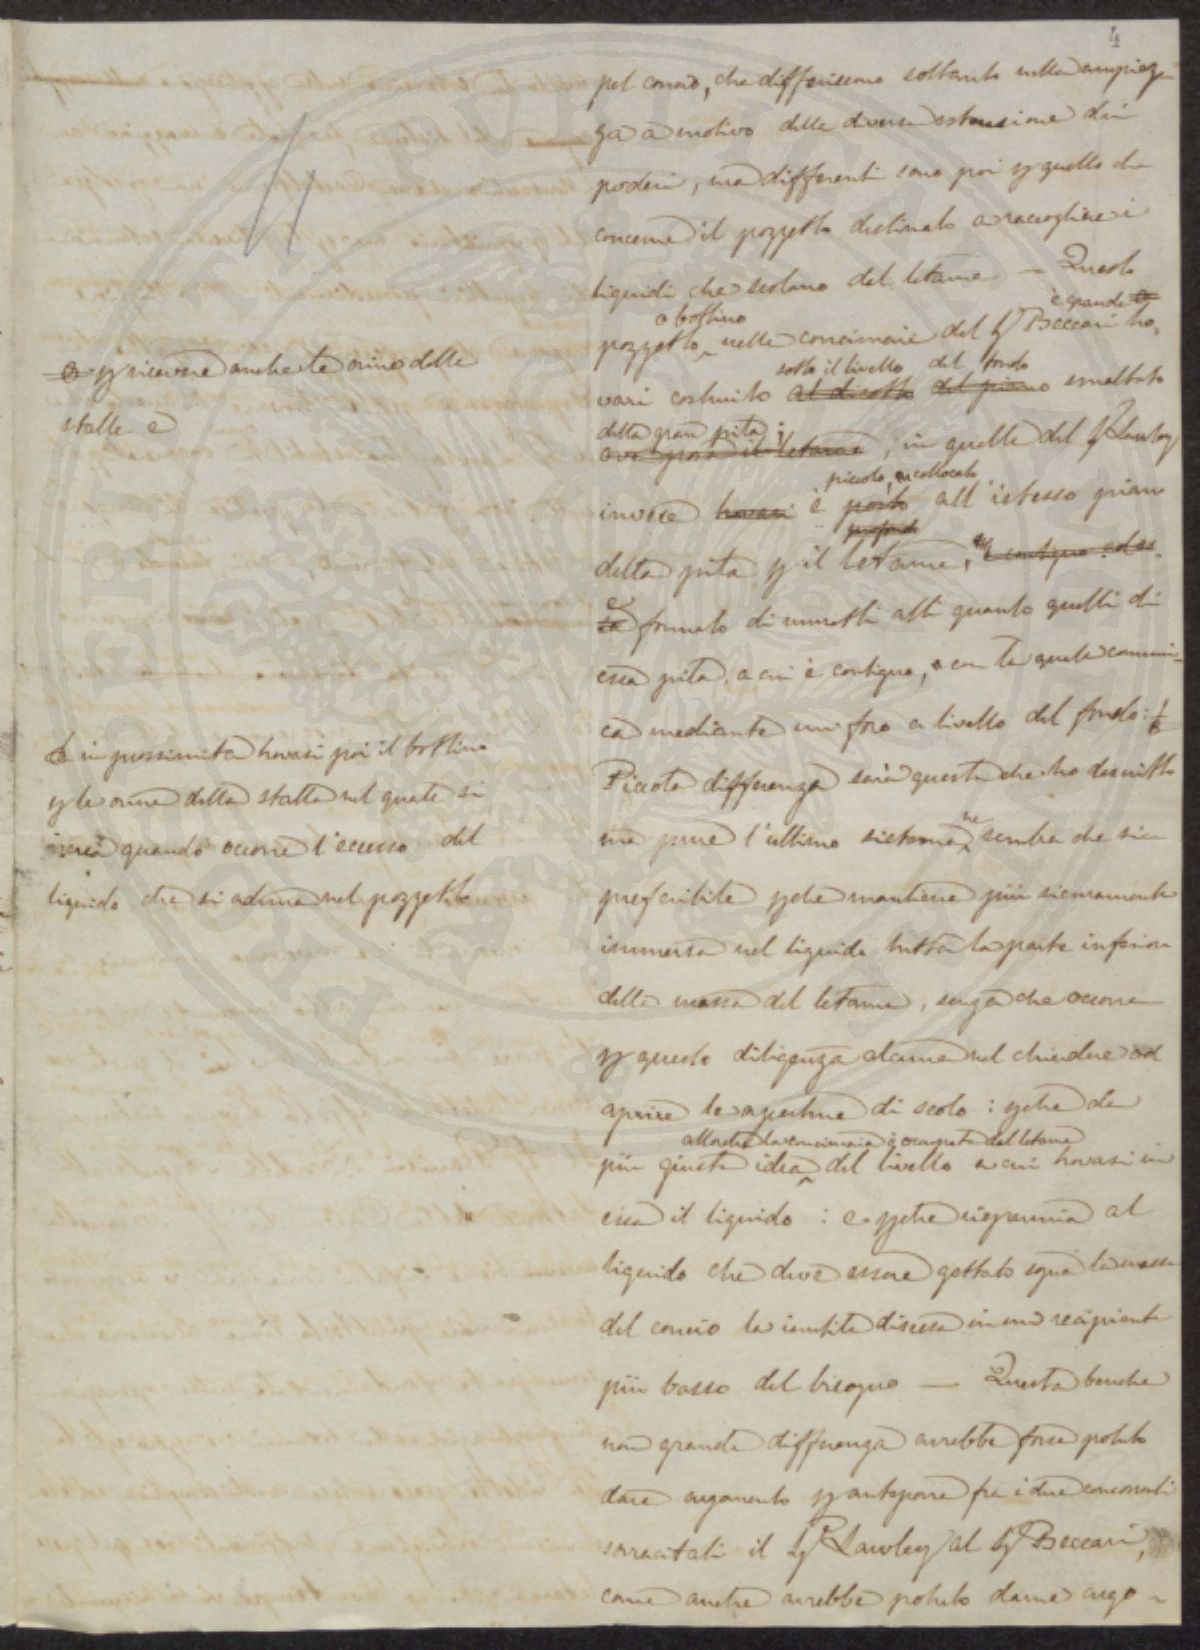 4
pel concio, che differiscono soltanto nella ampiez-
za a motivo della diversa estensione dei
poderi, ma differenti sono poi p quello che
concerne il pozzetto destinato a raccogliere i
liquidi che scolano dal letame — Questo
o bottino è grande
pozzetto nelle concimaie del Sig Beccari tro-
sotto il livello del fondo
vasi costruito al disotto del piano smaltato
della gran pita;
ove posa il letame, in quelle del Sig Lawley
piccolo, collocato
invece trovasi è posto all'istesso piano
profondo
della pita p il letame, è contiguo ad es-
sa formato di muretti alti quanto quelli di
essa pita, a cui è contiguo, e con la quale comuni-
ca mediante un foro a livello del fondo:
Piccola differenza sarà questa che ho descritto
ma pure l'ultimo sistema me sembra che sia
preferibile pchè mantiene più sicuramente
immersa nel liquido tutta la parte inferiore
della massa del letame, senza che occorra
p questo diligenza alcuna nel chiudere ed
aprire le aperture di scolo: pchè da
allorchè la concimaia è occupata dal letame
più giusta idea del livello a cui trovasi in
essa il liquido: e pchè risparmia al
liquido che deve essere gettato sopra la massa
del concio la inutile discesa in un recipiente
più basso del bisogno — Questa benchè
non grande differenza avrebbe forse potuto
dare argomento p anteporre fra i due concorrenti
sovracitati il Sig Lawley al Sig Beccari,
come anche avrebbe potuto darne argo-
p ricevere anche le orine delle
stalle e
in prossimità trovasi poi il bottino
p le orine della stalla nel quale si
quando occorre l'eccesso del
liquido che si aduna nel pozzetto